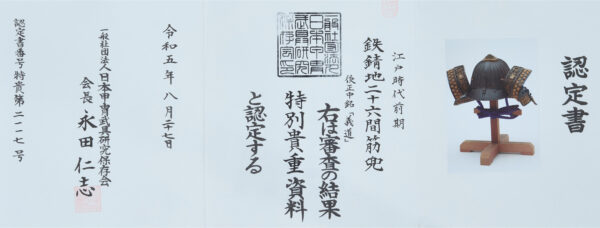 認定書
江戸時代前期
鉄錆地二十六間筋兜
後正中銘「義道」
右は審査の結果
特別貴重資料
と認定する
令和五年八月二十七日
一般社団法人日本甲冑武具研究保存会
会長 永田仁志
認定書番号特貴第二一一七号